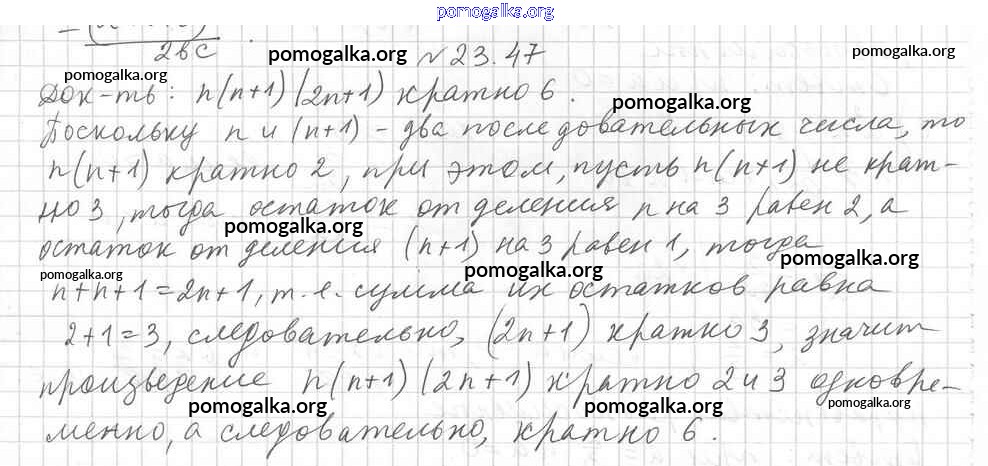 pomogalka.org
2bc
pomogalka.org № 23.47 pomogalka.org
pomogalka.org
Док-ть: n(n+1)(2n+1) кратно 6.
pomogalka.org
Поскольку n и (n+1) - два последовательных числа, то
n(n+1) кратно 2, при этом, пусть n(n+1) не крат-
но 3, тогда остаток от деления n на 3 равен 2, а
pomogalka.org
остаток от деления (n+1) на 3 равен 1, тогда
pomogalka.org pomogalka.org pomogalka.org
n+n+1=2n+1, т.е. сумма их остатков равна
2+1=3, следовательно, (2n+1) кратно 3, значит
произведение n(n+1)(2n+1) кратно 2 и 3 одновре-
pomogalka.org pomogalka.org pomogalka.org
менно, а следовательно, кратно 6.